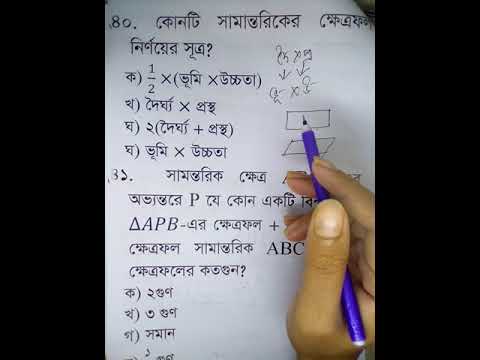 ৪০. কোনটি সামান্তরিকের ক্ষেত্রফল
নির্ণয়ের সূত্র?
ক) 1/2 ×(ভূমি ×উচ্চতা)
খ) দৈর্ঘ্য × প্রস্থ
ঘ) ২(দৈর্ঘ্য + প্রস্থ)
ঘ) ভূমি × উচ্চতা
দৈ × প্র
ভূ × উ
৪১. সামন্তরিক ক্ষেত্র
অভ্যন্তরে P যে কোন একটি
ΔAPB-এর ক্ষেত্রফল +
ক্ষেত্রফল সামান্তরিক ABC
ক্ষেত্রফলের কতগুন?
ক) ২গুণ
খ) ৩ গুণ
গ) সমান